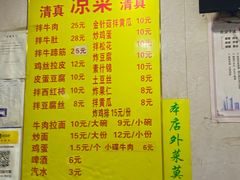 清真 凉菜 清真
拌牛肉 25元 金针菇拌黄瓜 10元
拌牛肚 28元 炒鸡蛋 10元
拌牛蹄筋 25元 拌松花 10元
鸡丝拉皮 12元 炸豆腐 10元
皮蛋豆腐 10元 素什锦 10元
拌西红柿 10元 土豆丝 8元
拌豆腐丝 8元 炸果仁 8元
拌黄瓜 8元
炸鸡排 15元/份
牛肉拉面 10元/大碗 9元/小碗
炒面 15元/大份 12元/小份
鸡蛋 1.5元/个 小碟牛肉 6元
啤酒 6元
汽水 3元
本店外菜莫